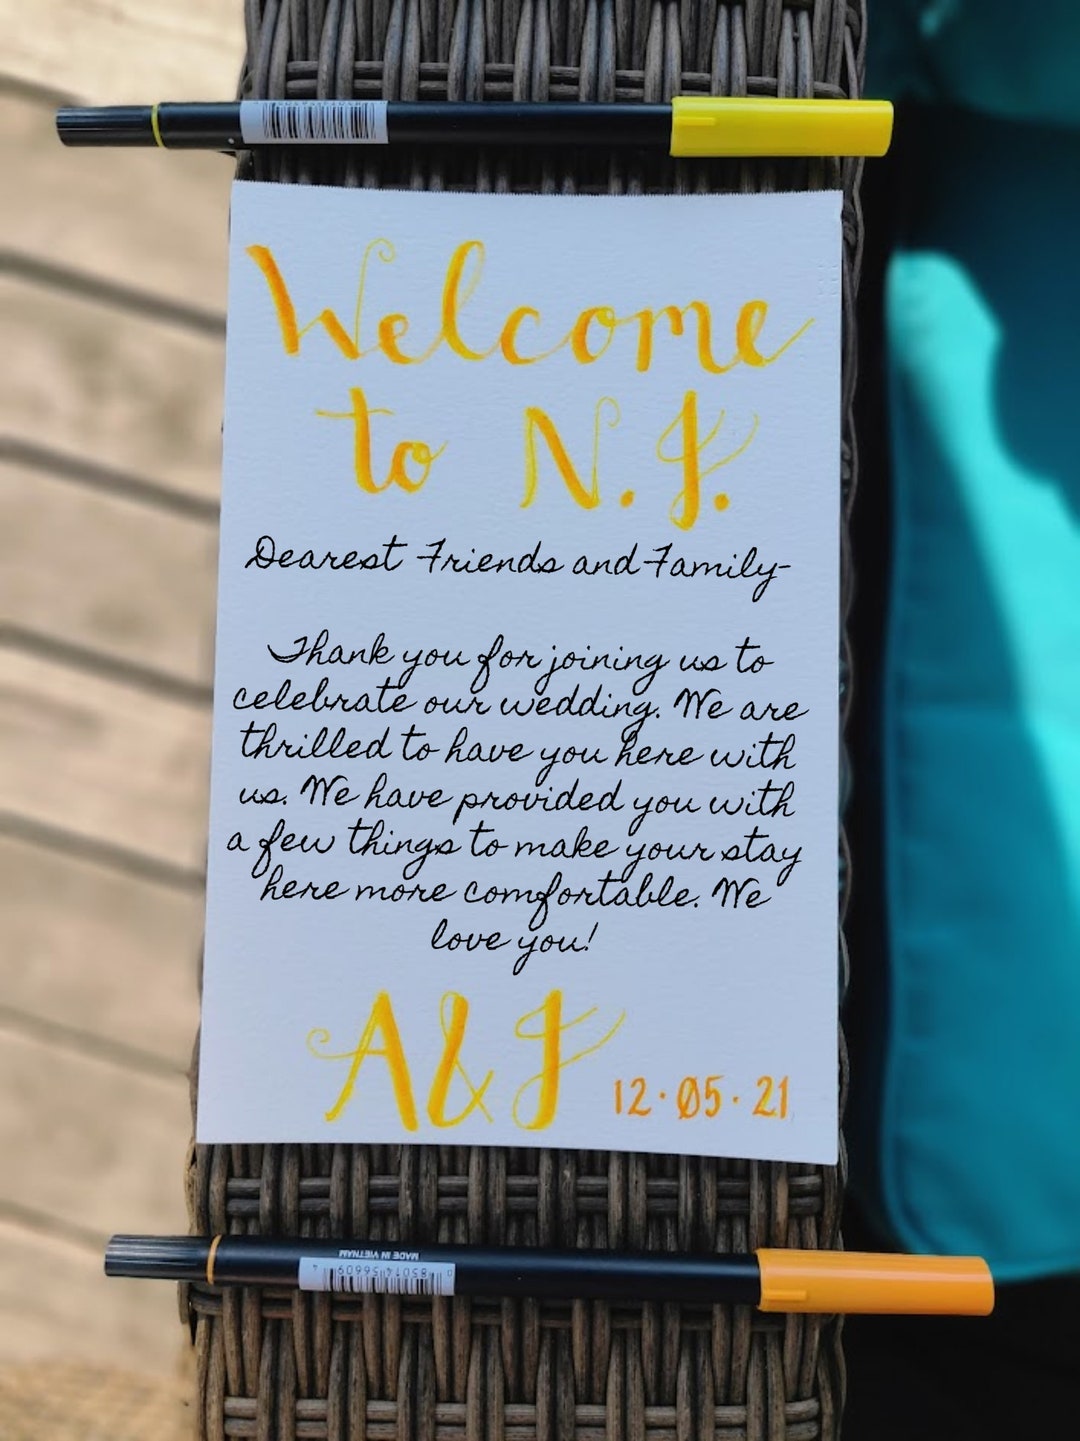 Welcome
to N.J.
Dearest Friends and Family-
Thank you for joining us to
celebrate our wedding. We are
thrilled to have you here with
us. We have provided you with
a few things to make your stay
here more comfortable. We
love you!
A&J
12·05·21
MADE IN VIETNAM
0 85014 56609 4